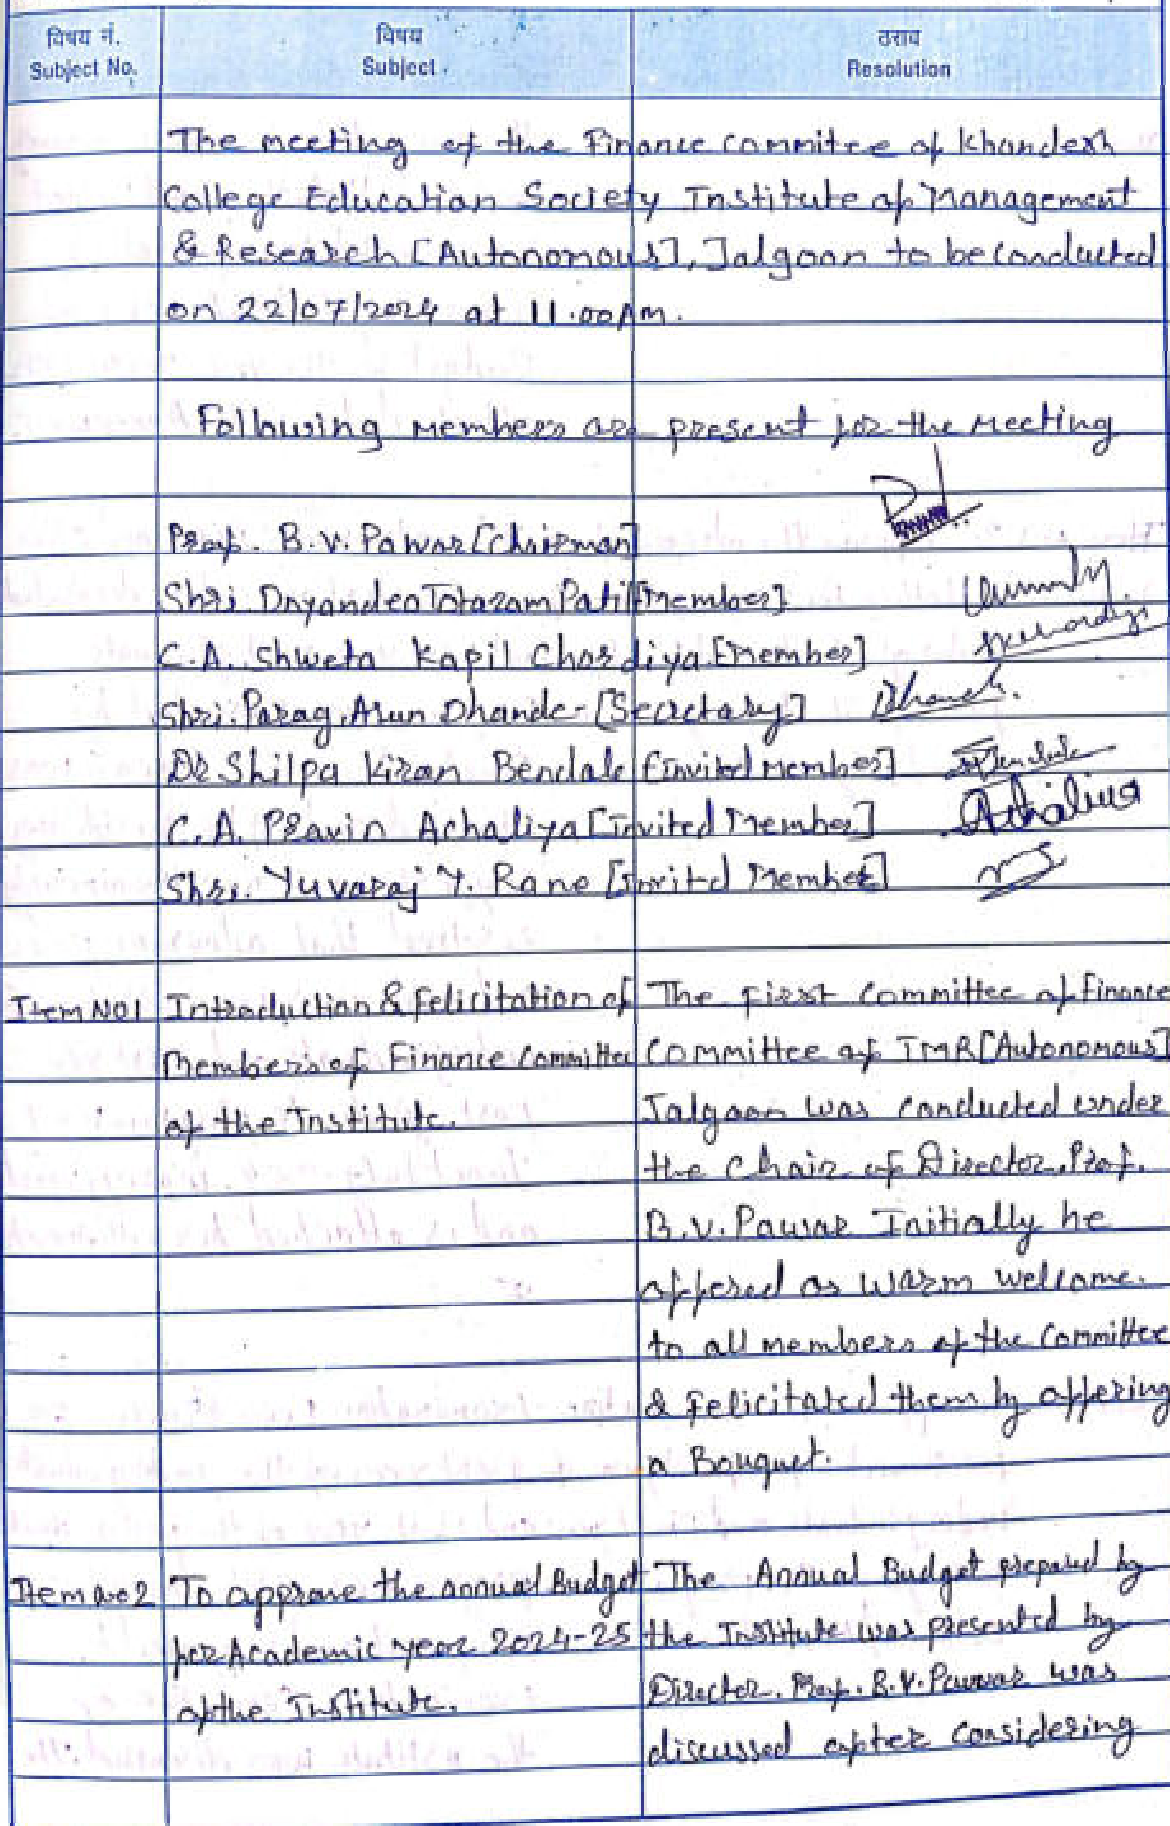 विषय नं.
Subject No.
विषय
Subject.
ठराव
Resolution
The meeting of the Finance Commitee of Khandesh
College Education Society Institute of Management
& Research [Autonomous], Jalgaon to be conducted
on 22/07/2024 at 11.00 Am.
Following Members are present for the Meeting
Prof. B.V. Pawar [Chairman]
Shri Dnyandeo Totaram Patil [Member]
C.A. Shweta Kapil Chordiya [Member]
Shri. Parag Arun Dhande - [Secretary]
Dr Shilpa Kiran Bendale [Invited Member]
C.A. Pravin Achaliya [Invited Member]
Shri. Yuvaraj Y. Rane [Invited Member]
Item No1
Introduction & Felicitation of
Members of Finance Committee
of the Institute.
The First Committee of Finance
Committee of IMR [Autonomous]
Jalgaon was conducted under
the Chair of Director, Prof.
B.V. Pawar Initially he
offered as warm welcome.
to all members of the Committee
& Felicitated them by offering
a Bouquet.
Item No 2
To approve the annual Budget
for Academic year 2024-25
of the Institute.
The Annual Budget prepared by
the Institute was presented by
Director. Prof. B.V. Pawar was
discussed after Considering